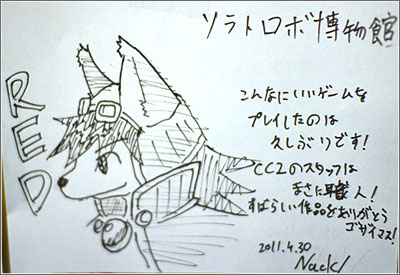 ソラトロボ博物館
RED
こんなにいいゲームを
プレイしたのは
久しぶりです!
CC2のスタッフは
まさに職人!
すばらしい作品をありがとう
ゴザイマス!
2011.4.30